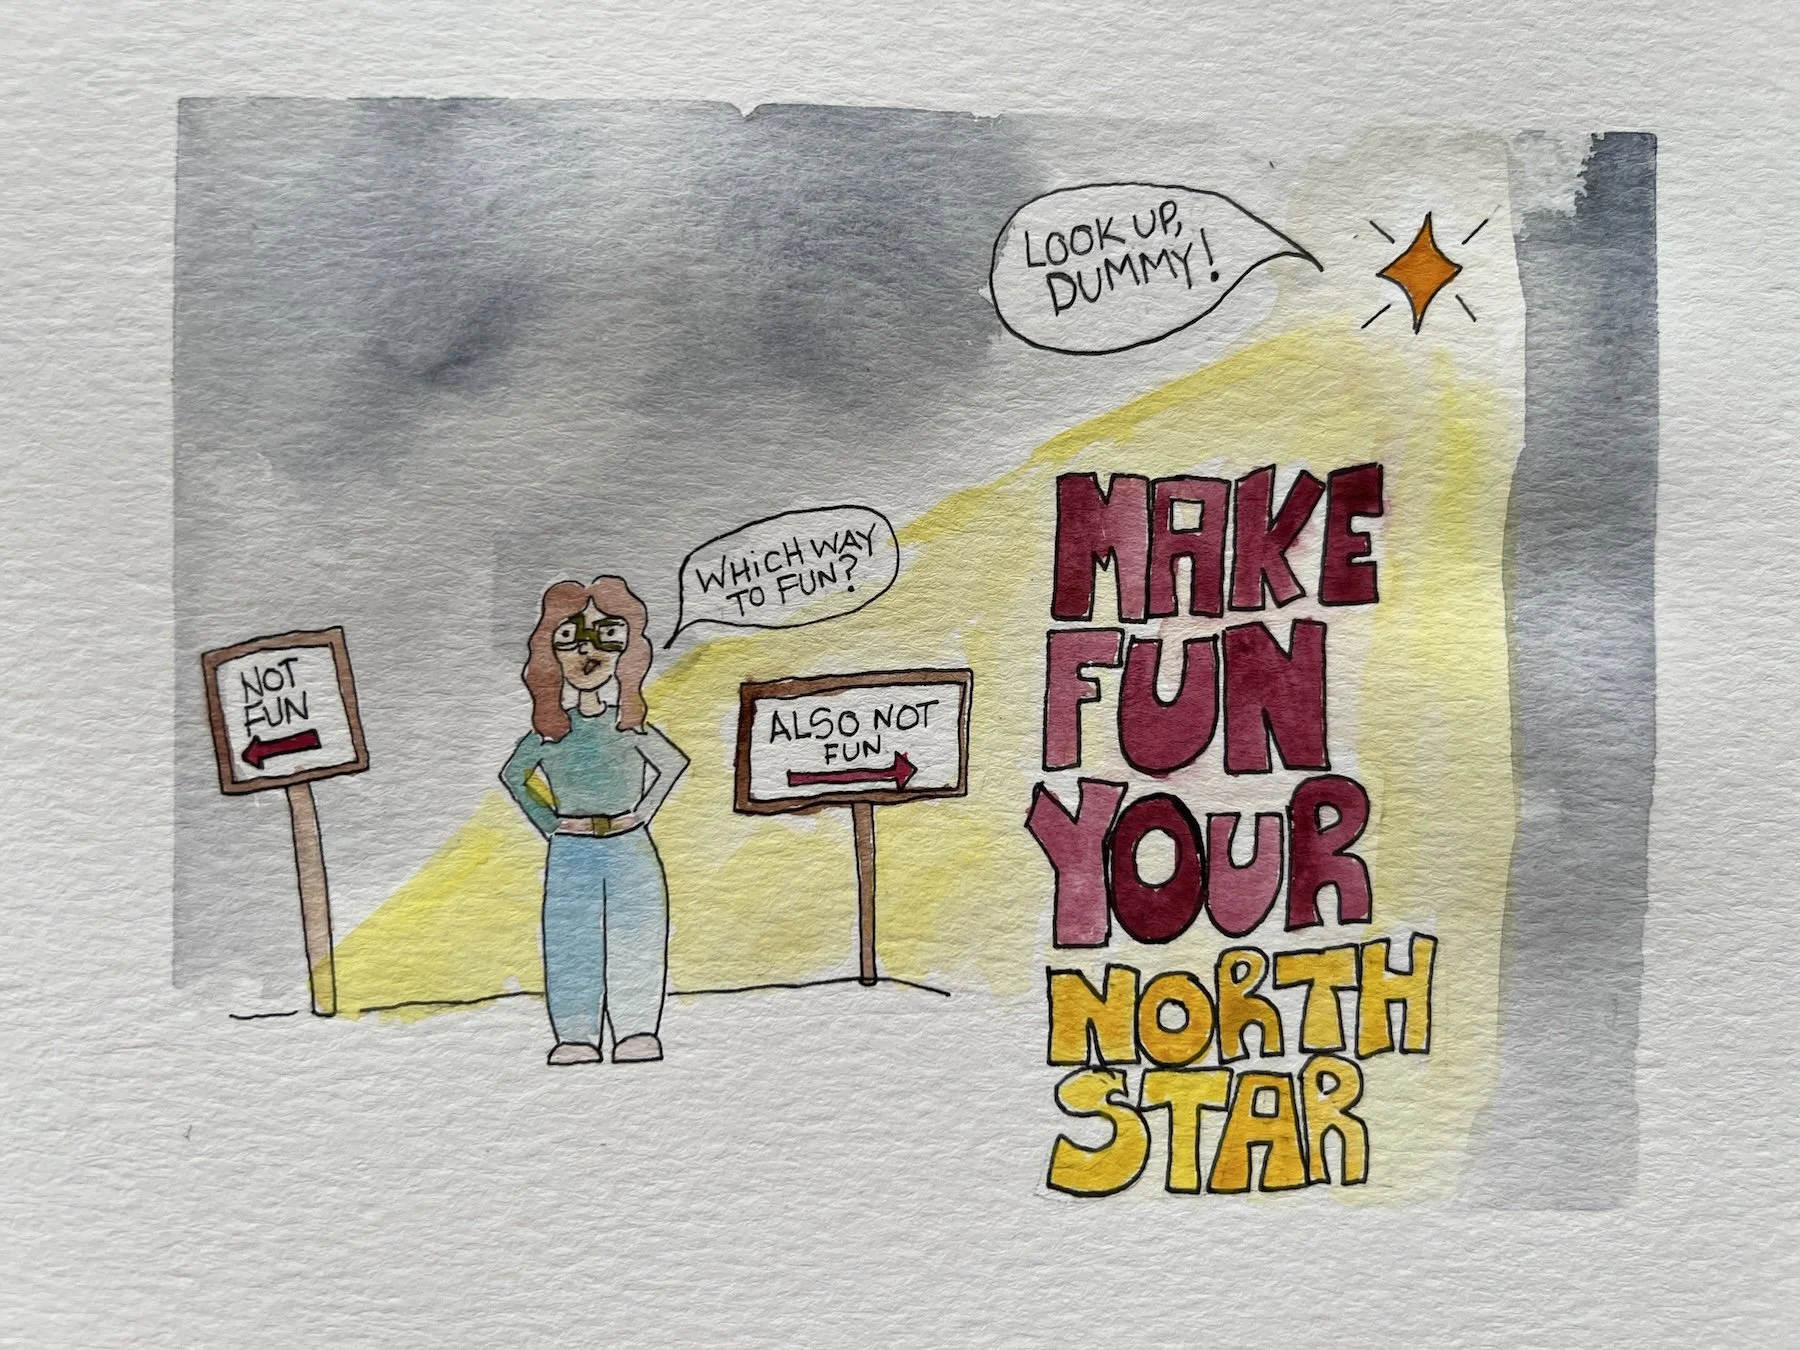 LOOK UP,
DUMMY!
WHICH WAY
TO FUN?
NOT
FUN
ALSO NOT
FUN
MAKE
FUN
YOUR
NORTH
STAR